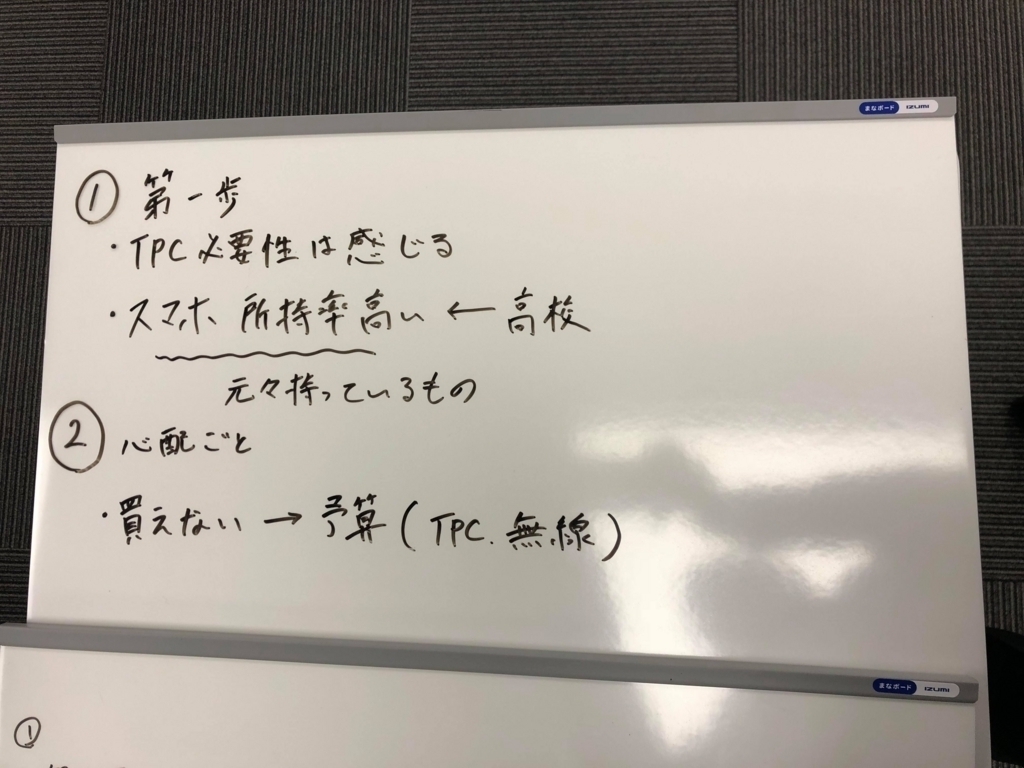 まなボード IZUMI
① 第一歩
・TPC 必要性は感じる
・スマホ 所持率高い ← 高校
元々持っているもの
② 心配ごと
・買えない → 予算 (TPC. 無線)
まなボード IZUMI
①